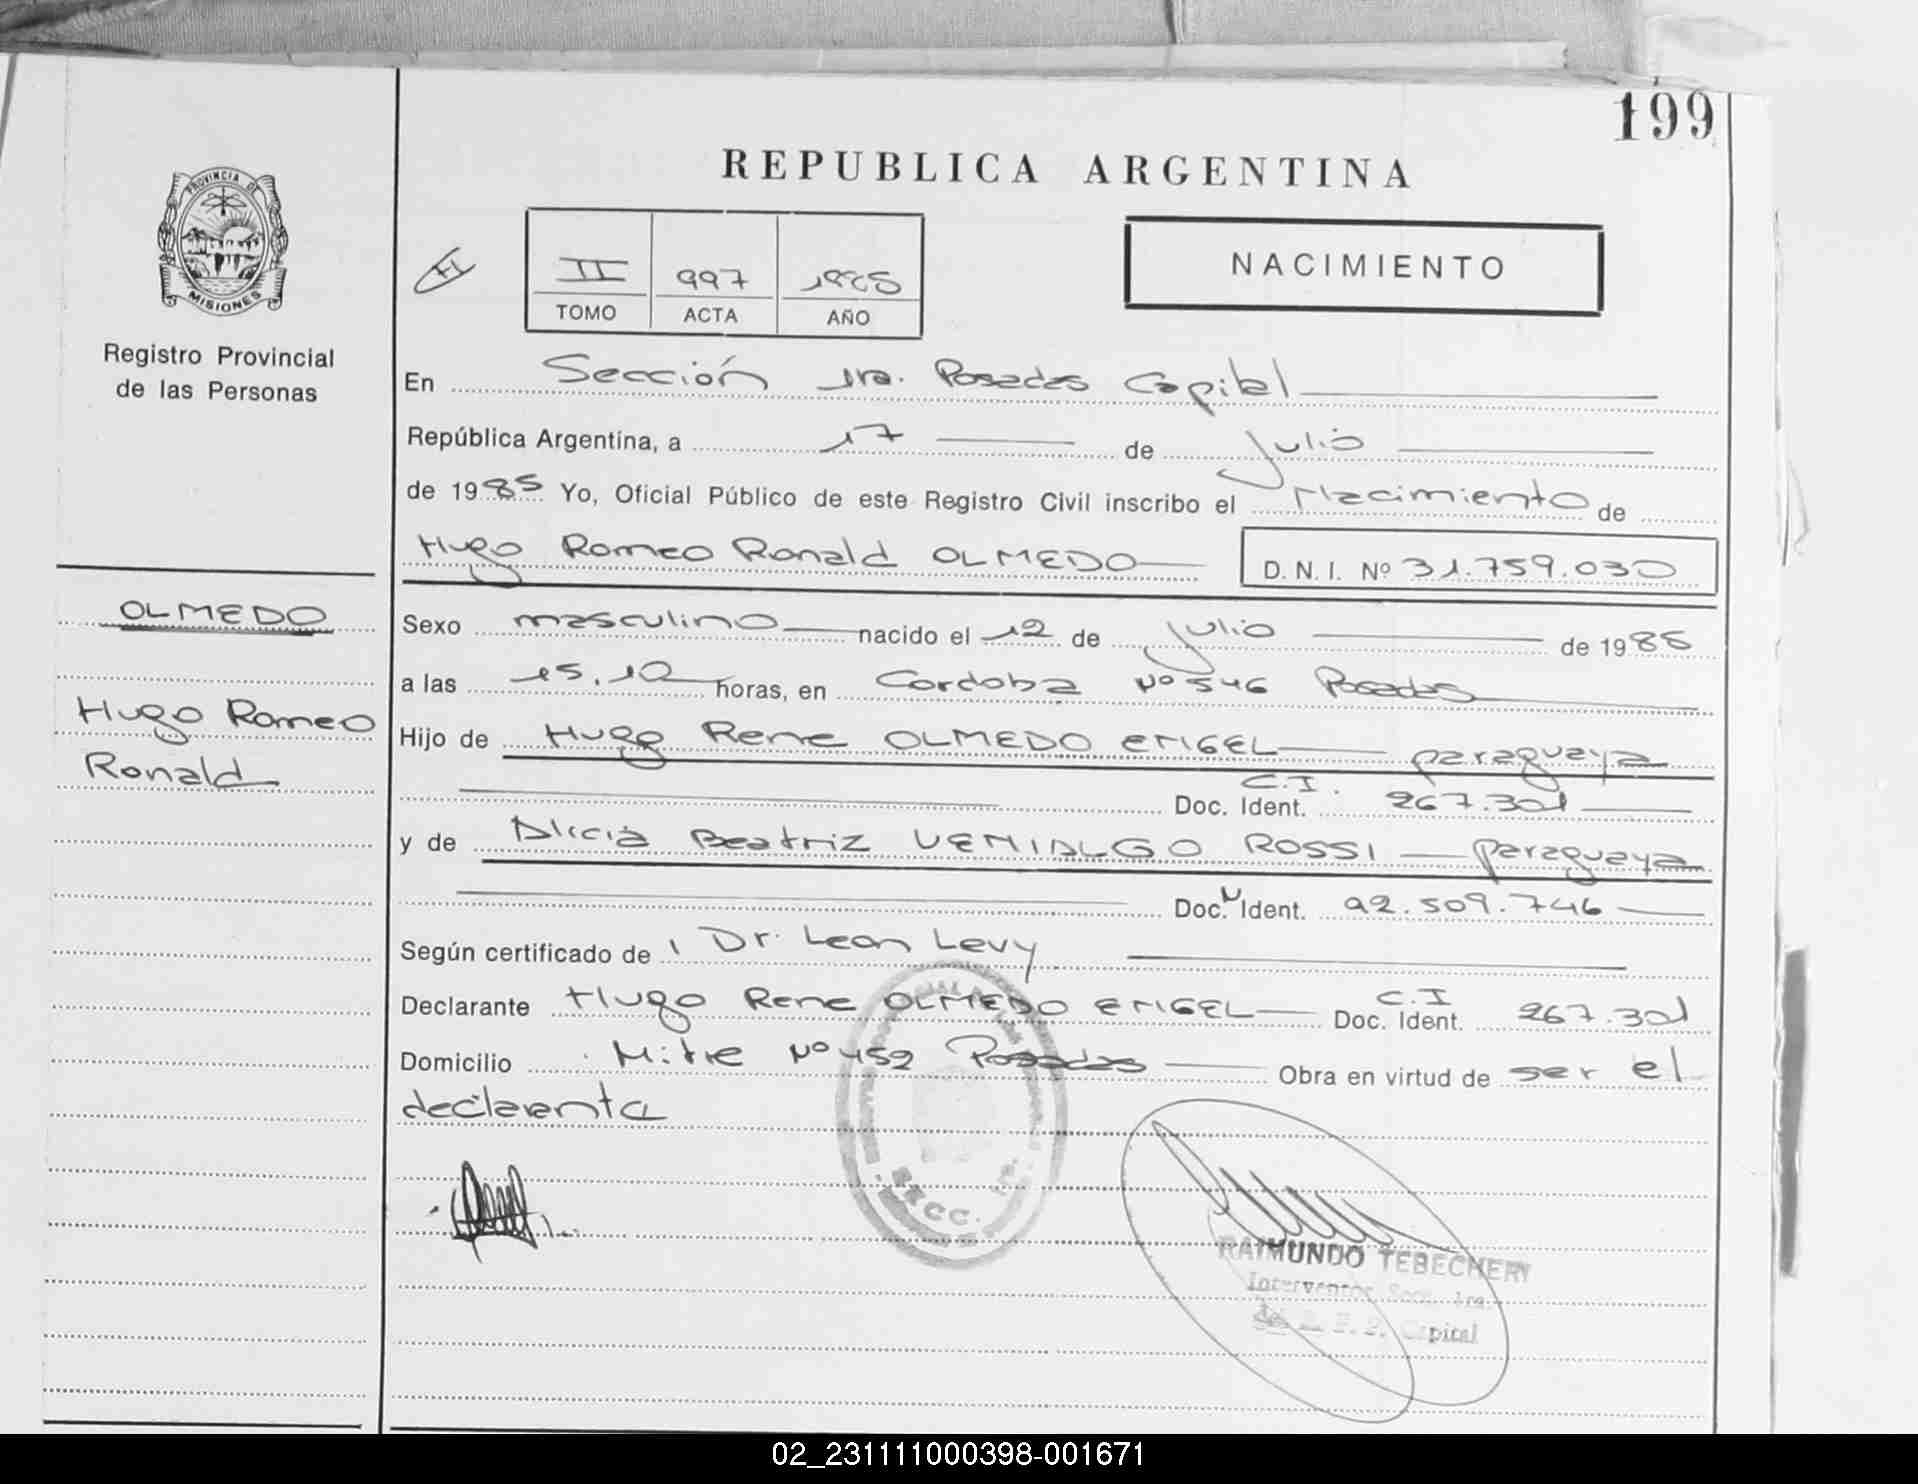 199
REPUBLICA ARGENTINA
PROVINCIA DE
MISIONES
Registro Provincial
de las Personas
II 997 1985
TOMO ACTA AÑO
NACIMIENTO
En Sección 1ra. Posadas Capital
República Argentina, a 17 de Julio
de 1985 Yo, Oficial Público de este Registro Civil inscribo el Nacimiento de
Hugo Romeo Ronald OLMEDO D.N.I. Nº 31.759.030
OLMEDO
Hugo Romeo
Ronald
Sexo masculino nacido el 12 de julio de 1985
a las 15.10 horas, en Cordoba Nº 546 Posadas
Hijo de Hugo Rene OLMEDO ENGEL paraguaya
C.I.
Doc. Ident. 267.301
y de Alicia Beatriz VENIALGO ROSSI paraguaya
Doc. Ident. 92.509.746
Según certificado de Dr. Leon Levy
Declarante Hugo Rene OLMEDO ENGEL C.I Doc. Ident. 267.301
Domicilio Mitre Nº 452 Posadas Obra en virtud de ser el
declaranta
SECC. 1ra.
RAIMUNDO TEBECHERY
Interventor Secc. 1ra.
R. P. P. Capital
02_231111000398-001671